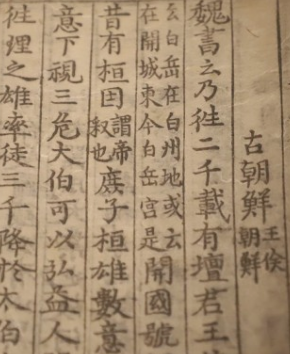 古朝鮮 王倹
朝鮮
魏書云乃徃二千載有壇君王
云白岳在白州地或云
在開城東今白岳宫是
開國號
昔有桓因
謂帝
釈也
庶子桓雄數意
意下視三危大伯可以弘益人
徃理之雄率徒三千降於太伯